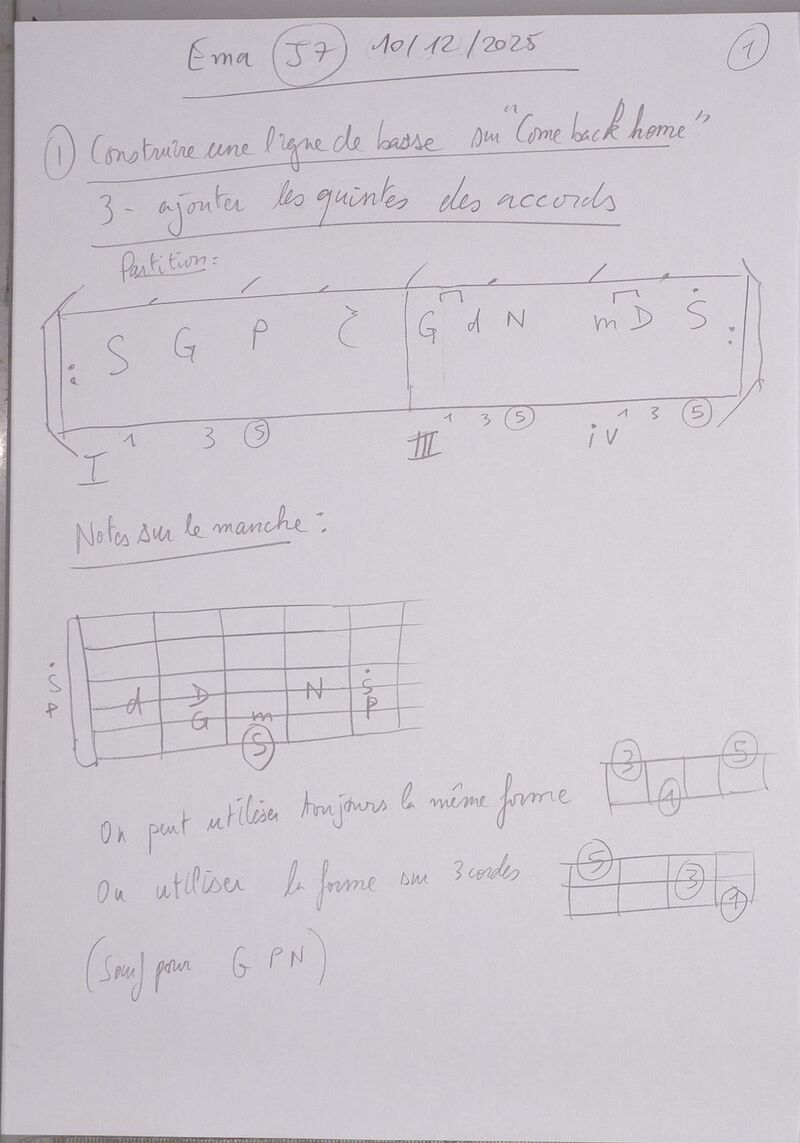 Ema J7 10/12/2025 1
1 Construire une ligne de basse sur "Come back home"
3 - ajouter les quintes des accords
Partition :
S G P G d N m D Ṡ
I 1 3 5 III 1 3 5 iv 1 3 5
Notes sur le manche :
Ṡ d D N Ṡ
P G m P
S
On peut utiliser toujours la même forme 3 1 5
Ou utiliser la forme sur 3 cordes 5 3 1
(Sauf pour G P N)